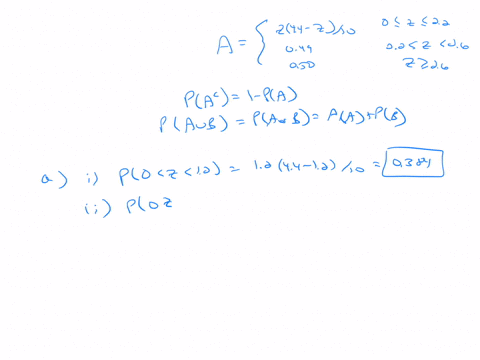 A = { z(4.4-z)/10 0 ≤ z ≤ 2.2
0.49 0.2 < z < 0.6
0.50 z ≥ 2.6
P(Aᶜ) = 1 - P(A)
P(A∪B) = P(A or B) = P(A) + P(B)
a) i) P(0 < z < 1.2) = 1.2(4.4-1.2)/10 = 0.384
ii) P(0 z